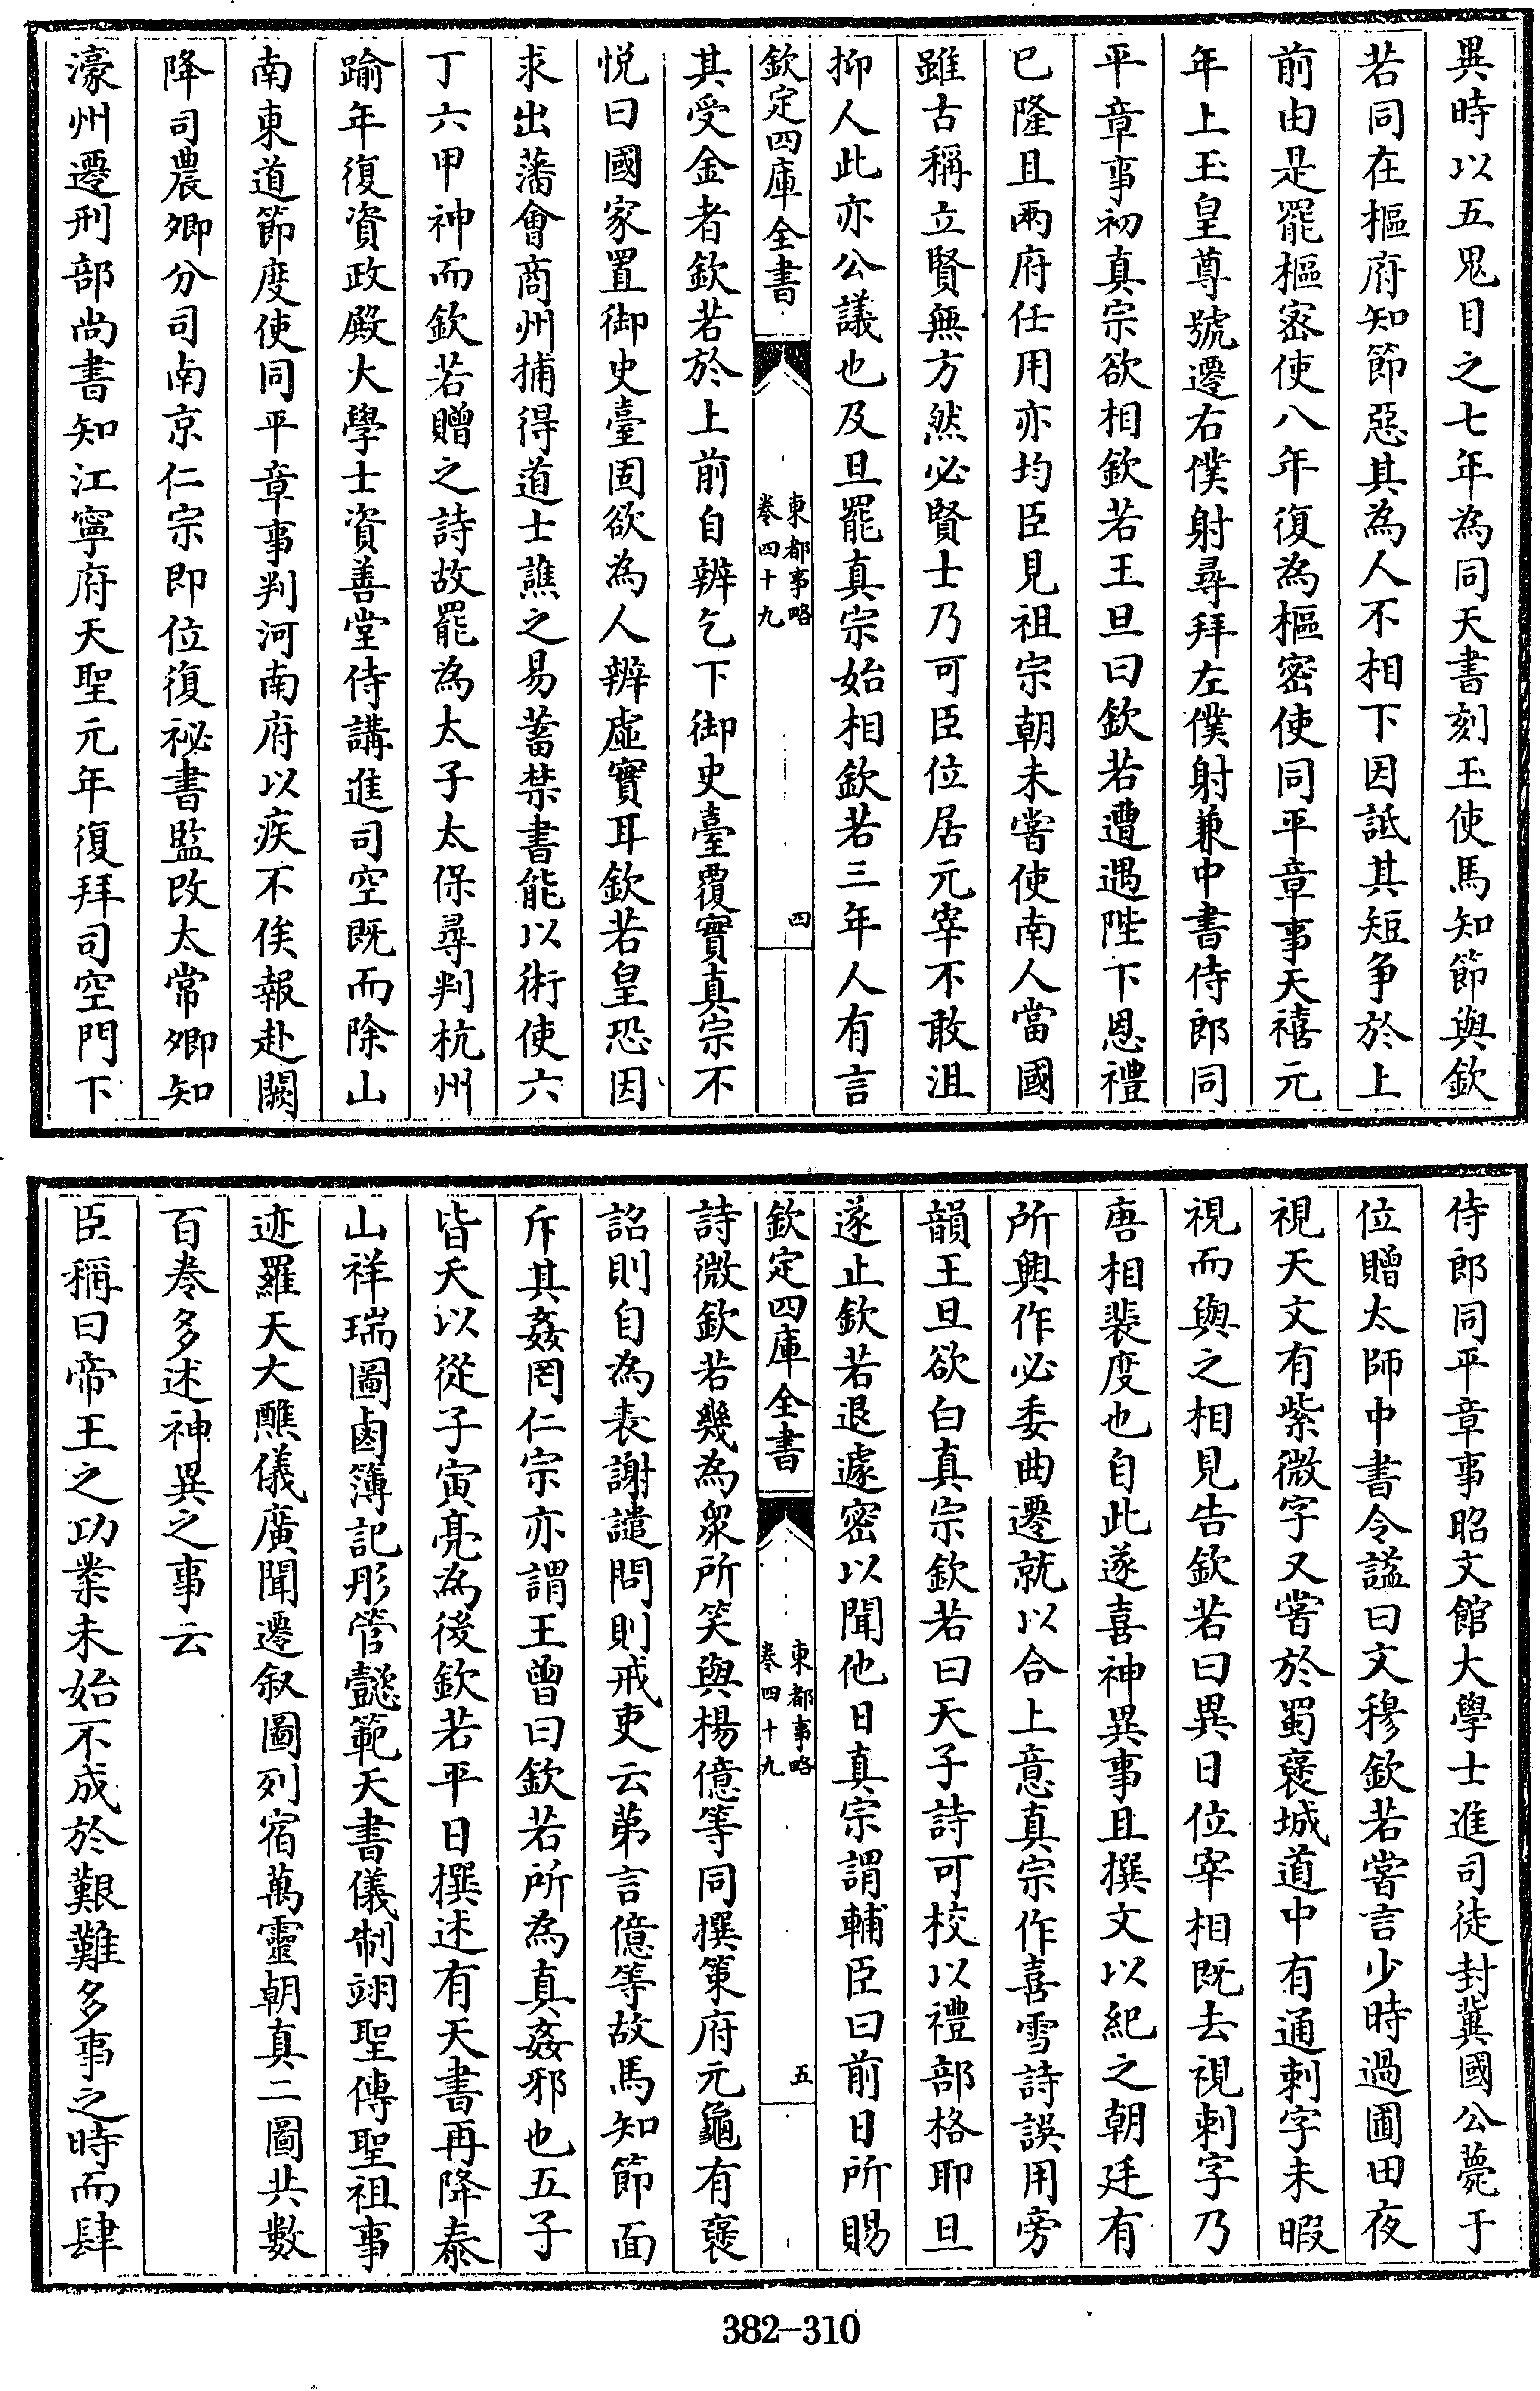 異時以五鬼目之七年為同天書刻玉使馬知節與欽
若同在樞府知節惡其為人不相下因詆其短争於上
前由是罷樞密使八年復為樞密使同平章事天禧元
年上玉皇尊號遷右僕射尋拜左僕射兼中書侍郎同
平章事初真宗欲相欽若王旦曰欽若遭遇陛下恩禮
已隆且兩府任用亦均臣見祖宗朝未嘗使南人當國
雖古稱立賢無方然必賢士乃可臣位居元宰不敢沮
抑人此亦公議也及旦罷真宗始相欽若三年人有言
欽定四庫全書
東都事略
卷四十九
四
其受金者欽若於上前自辨乞下御史臺覆實真宗不
悦曰國家置御史臺固欲為人辨虛實耳欽若皇恐因
求出藩會商州捕得道士譙之易蓄禁書能以術使六
丁六甲神而欽若贈之詩故罷為太子太保尋判杭州
踰年復資政殿大學士資善堂侍講進司空既而除山
南東道節度使同平章事判河南府以疾不俟報赴闕
降司農卿分司南京仁宗即位復祕書監改太常卿知
濠州遷刑部尚書知江寧府天聖元年復拜司空門下
侍郎同平章事昭文館大學士進司徒封冀國公薨于
位贈太師中書令諡曰文穆欽若嘗言少時過圃田夜
視天文有紫微字又嘗於蜀襃城道中有通刺字未暇
視而與之相見告欽若曰異日位宰相既去視刺字乃
唐相裴度也自此遂喜神異事且撰文以紀之朝廷有
所興作必委曲遷就以合上意真宗作喜雪詩誤用旁
韻王旦欲白真宗欽若曰天子詩可校以禮部格耶旦
遂止欽若退遽密以聞他日真宗謂輔臣曰前日所賜
欽定四庫全書
東都事略
卷四十九
五
詩微欽若幾為衆所笑與楊億等同撰策府元龜有襃
詔則自為表謝譴問則戒吏云苐言億等故馬知節面
斥其姦罔仁宗亦謂王曾曰欽若所為真姦邪也五子
皆夭以從子寅亮為後欽若平日撰述有天書再降泰
山祥瑞圖鹵簿記彤管懿範天書儀制翊聖傳聖祖事
迹羅天大醮儀廣聞遷叙圖列宿萬靈朝真二圖共數
百卷多述神異之事云
臣稱曰帝王之功業未始不成於艱難多事之時而肆
382-310